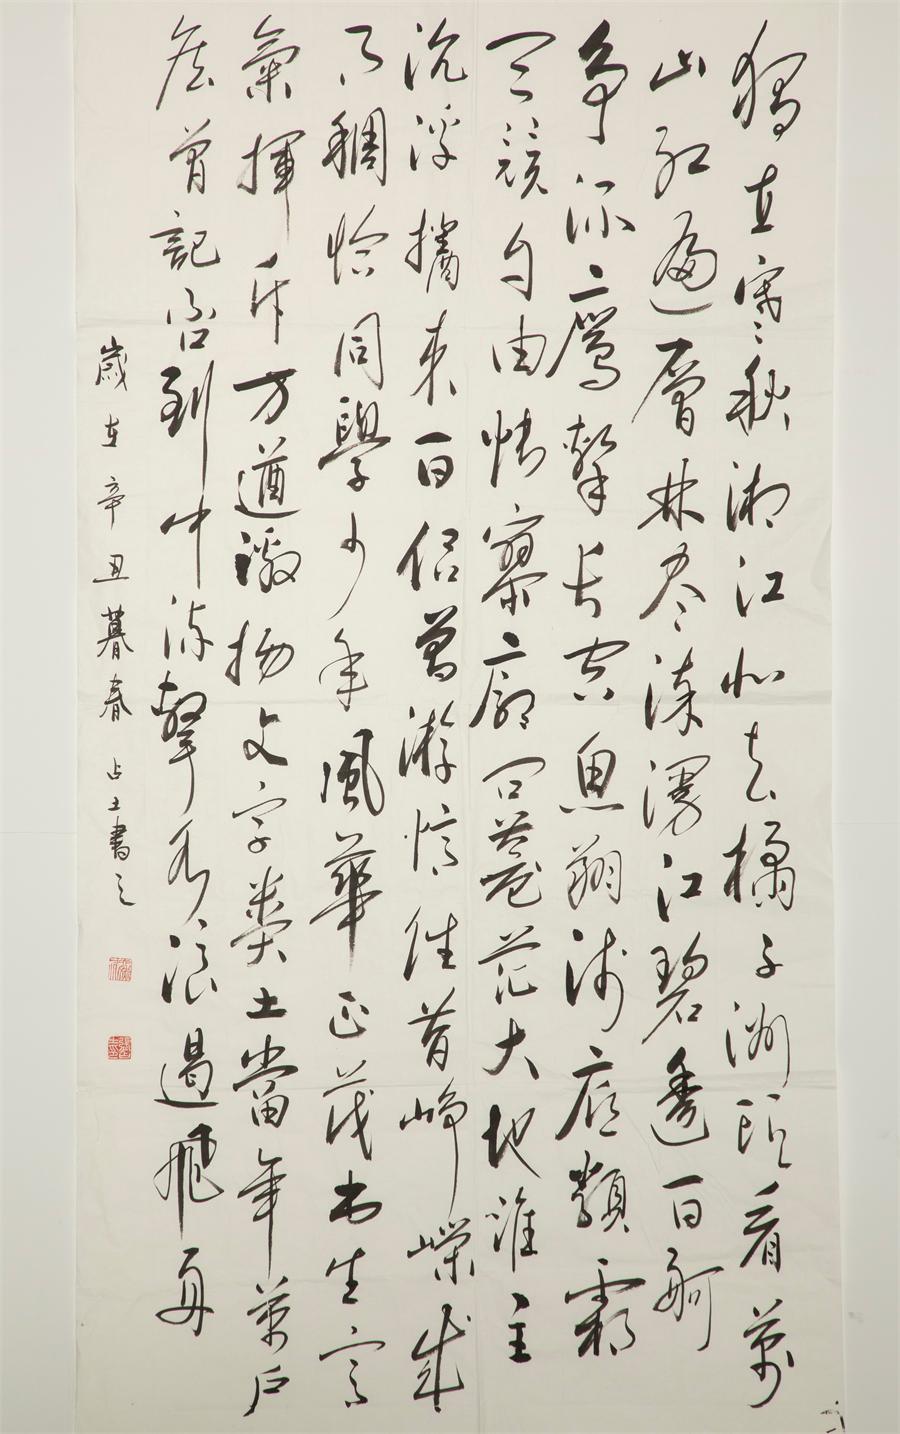 獨立寒秋湘江北去橘子洲頭看萬
山紅遍層林盡染漫江碧透百舸
爭流鷹擊長空魚翔淺底類霜
天競自由悵寥廓問蒼茫大地誰主
沉浮攜來百侶曾游憶往昔崢嶸歲
月稠恰同學少年風華正茂書生意
氣揮斥方遒激揚文字糞土當年萬戶
侯曾記否到中流擊水浪遏飛舟
歲在辛丑暮春占士書之